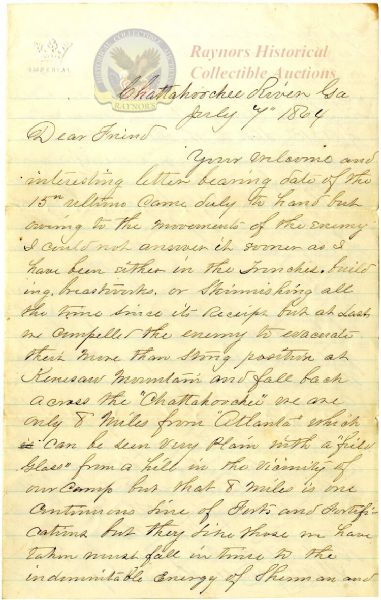 IMPERIAL
HISTORICAL COLLECTIBLE AUCTIONS
RAYNORS
Raynors Historical
Collectible Auctions
Chattahoochee River Ga
July 7th 1864
Dear Friend
Your welcome and
interesting letter bearing date of the
15th ultimo came duly to hand but
owing to the movements of the enemy
I could not answer it sooner as I
have been either in the trenches, build
ing, breastworks, or Skirmishing all
the time since its receipt but at last
we compelled the enemy to evacuate
their more than strong position at
Kenesaw Mountain and fall back
across the "Chattahoochee" we are
only 8 Miles from "Atlanta" which
can be seen very plain with a "field
Glass" from a hill in the vicinity of
our Camp but that 8 miles is one
continuous line of Forts and Fortifi-
cations but they like those we have
taken must fall in time to the
indomitable Energy of Sherman and